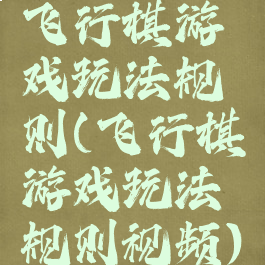 飞行棋游
戏玩法规
则(飞行棋
游戏玩法
规则视频)